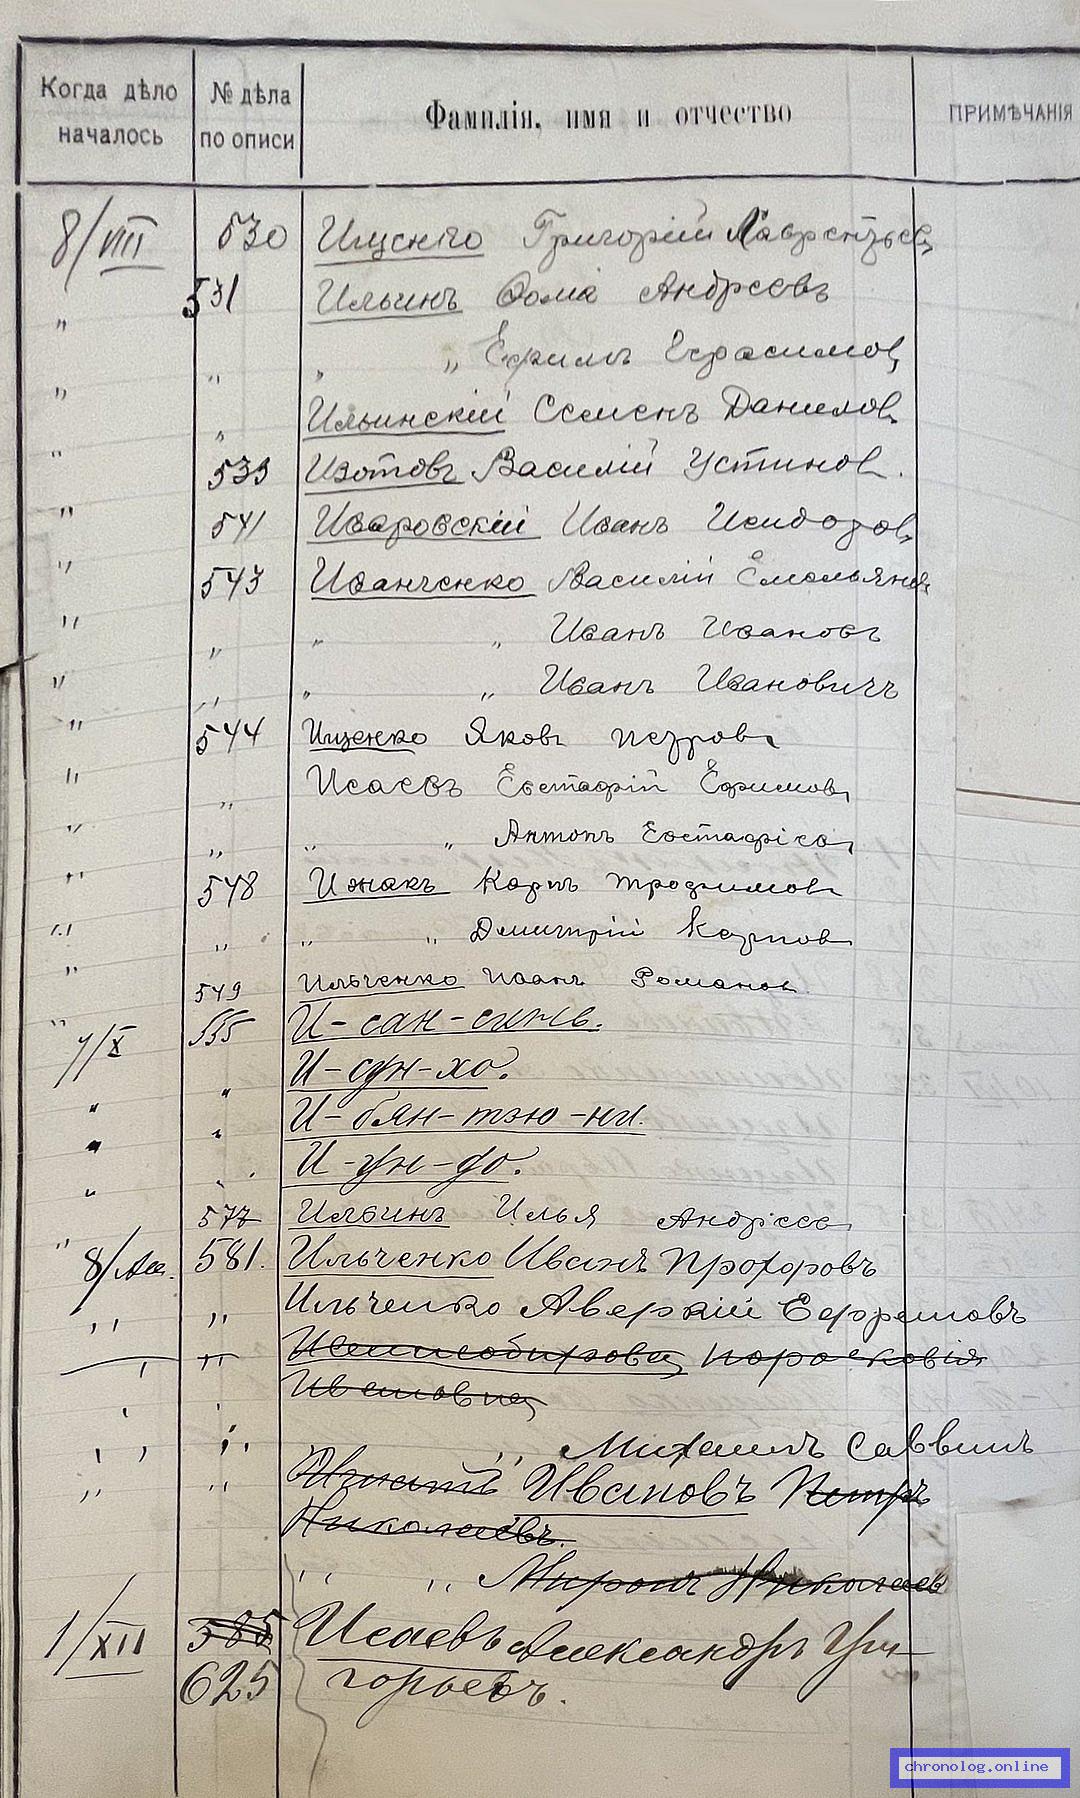 Когда дѣло началось № дѣла по описи Фамилія, имя и отчество ПРИМѢЧАНІЯ
8/VIII 530 Ищенко Григорій Лаврентьев
" 531 Ильинъ Фома Андреевъ
" " " " Ефимъ Герасимов
" " Ильинскій Семенъ Данилов
" 539 Изотовъ Василій Устинов
" 541 Иваровскій Иванъ Исидоров
" 543 Иванченко Василій Емельянов
" " " " Иванъ Ивановъ
" " " " Иванъ Ивановичъ
" 544 Ищенко Яковъ Петров
" " Исаевъ Евстафій Ефимов
" " " " Антонъ Евстафіев
" 548 Ижакъ Карпъ Трофимов
" " " " Дмитрій Карпов
" 549 Ильченко Иванъ Романов
7/X 555 И-сан-
" " И-сун-хо.
" " И-бян-тэю-ни.
" " И-ун-до.
" 577 Ильинъ Илья Андреев
8/ 581. Ильченко Иванъ Прохоровъ
" " Ильченко Аверкій Ефремовъ
" " Парасковія
Ивановна
" " " Михаилъ Саввинъ
" " Игнатъ Ивановъ Петръ
Николаевъ.
" " Миронъ Николаев
1/XII 585 Исаевъ Александръ Гри-
625 горьевъ.
chronolog.online